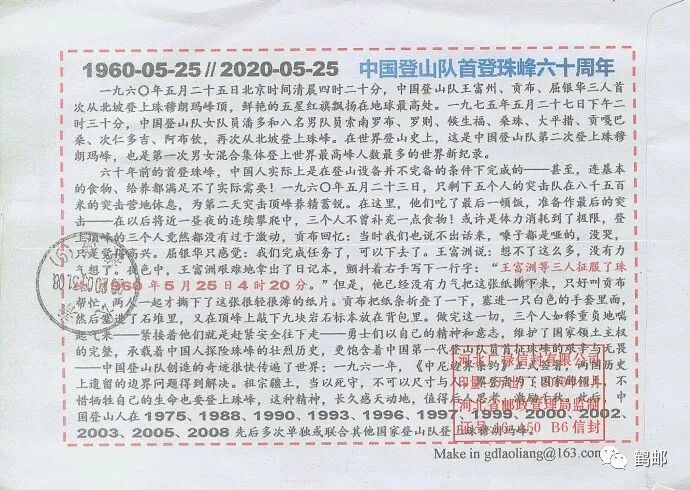 1960-05-25 // 2020-05-25 中国登山队首登珠峰六十周年
一九六〇年五月二十五日北京时间清晨四时二十分，中国登山队王富州、贡布、屈银华三人首
次从北坡登上珠穆朗玛峰顶，鲜艳的五星红旗飘扬在地球最高处。一九七五年五月二十七日下午二
时三十分，中国登山队女队员潘多和八名男队员索南罗布、罗则、候生福、桑珠、大平措、贡嘎巴
桑、次仁多吉、阿布钦，再次从北坡登上珠峰。在世界登山史上，这是中国登山队第二次登上珠穆
朗玛峰，也是第一次男女混合集体登上世界最高峰人数最多的世界新纪录。
六十年前的首登珠峰，中国人实际上是在登山设备并不完备的条件下完成的——甚至，连基本
的食物、给养都满足不了实际需要！一九六〇年五月二十三日，只剩下五个人的突击队在八千五百
米的突击营地休息，为第二天突击顶峰养精蓄锐。在这里，他们吃了最后一顿饭，准备作最后的突
击——在以后将近一昼夜的连续攀爬中，三个人不曾补充一点食物！或许是体力消耗到了极限，登
上顶峰的三个人竟然都没有过于激动，贡布回忆：当时我们也说不出话来，嗓子都是哑的，没哭，
只是觉得高兴。屈银华只感觉：我们完成任务了，可以下去了。王富洲说：想不了这么多，没有力
气想了。夜色中，王富洲艰难地拿出了日记本，颤抖着右手写下一行字：“王富洲等三人征服了珠
峰。1960年5月25日4时20分。”但是，他已经没有力气把这张纸撕下来，只好叫贡布
帮忙，两人一起才撕下了这张很轻很薄的纸片。贡布把纸条折叠了一下，塞进一只白色的手套里面，
然后塞进了石堆里，又在顶峰上敲下九块岩石标本放在背包里。做完这一切，三个人如释重负地喘
起气来——紧接着他们就是赶紧安全往下走——勇士们以自己的精神和意志，维护了国家领土主权
的完整，承载着中国人探险珠峰的壮烈历史，更饱含着中国第一代登山队员首征珠峰的艰辛与无畏
——中国登山队创造的奇迹很快传遍了世界：一九六一年，《中尼边界条约》正式签署，两国历史
上遗留的边界问题得到解决。祖宗疆土，当以死守，不可以尺寸与人。攀登者为了国家的领土，不
惜牺牲自己的生命也要登上珠峰，这种精神，长久感天动地，值得后人思考，激励千秋。此后，中
国登山人在1975、1988、1990、1993、1996、1997、1999、2000、2002、
2003、2005、2008先后多次单独或联合其他国家登山队登上珠穆朗玛峰。
河北省邮政管理局监制
B6信封
Make in gdlaoliang@163.com
鹤邮